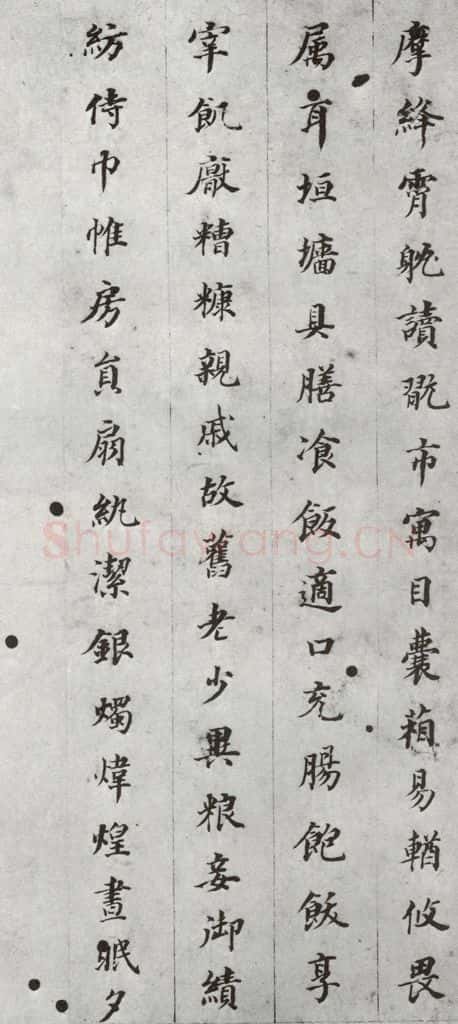 摩絳霄躭讀翫市寓目囊葙易輶攸畏
属耳垣墻具膳飡飯適口充腸飽飯享
宰飢厭糟糠親戚故舊老少異粮妾御績
紡侍巾帷房貟扇紈潔銀燭煒煌晝眠夕
Shufawang.CN